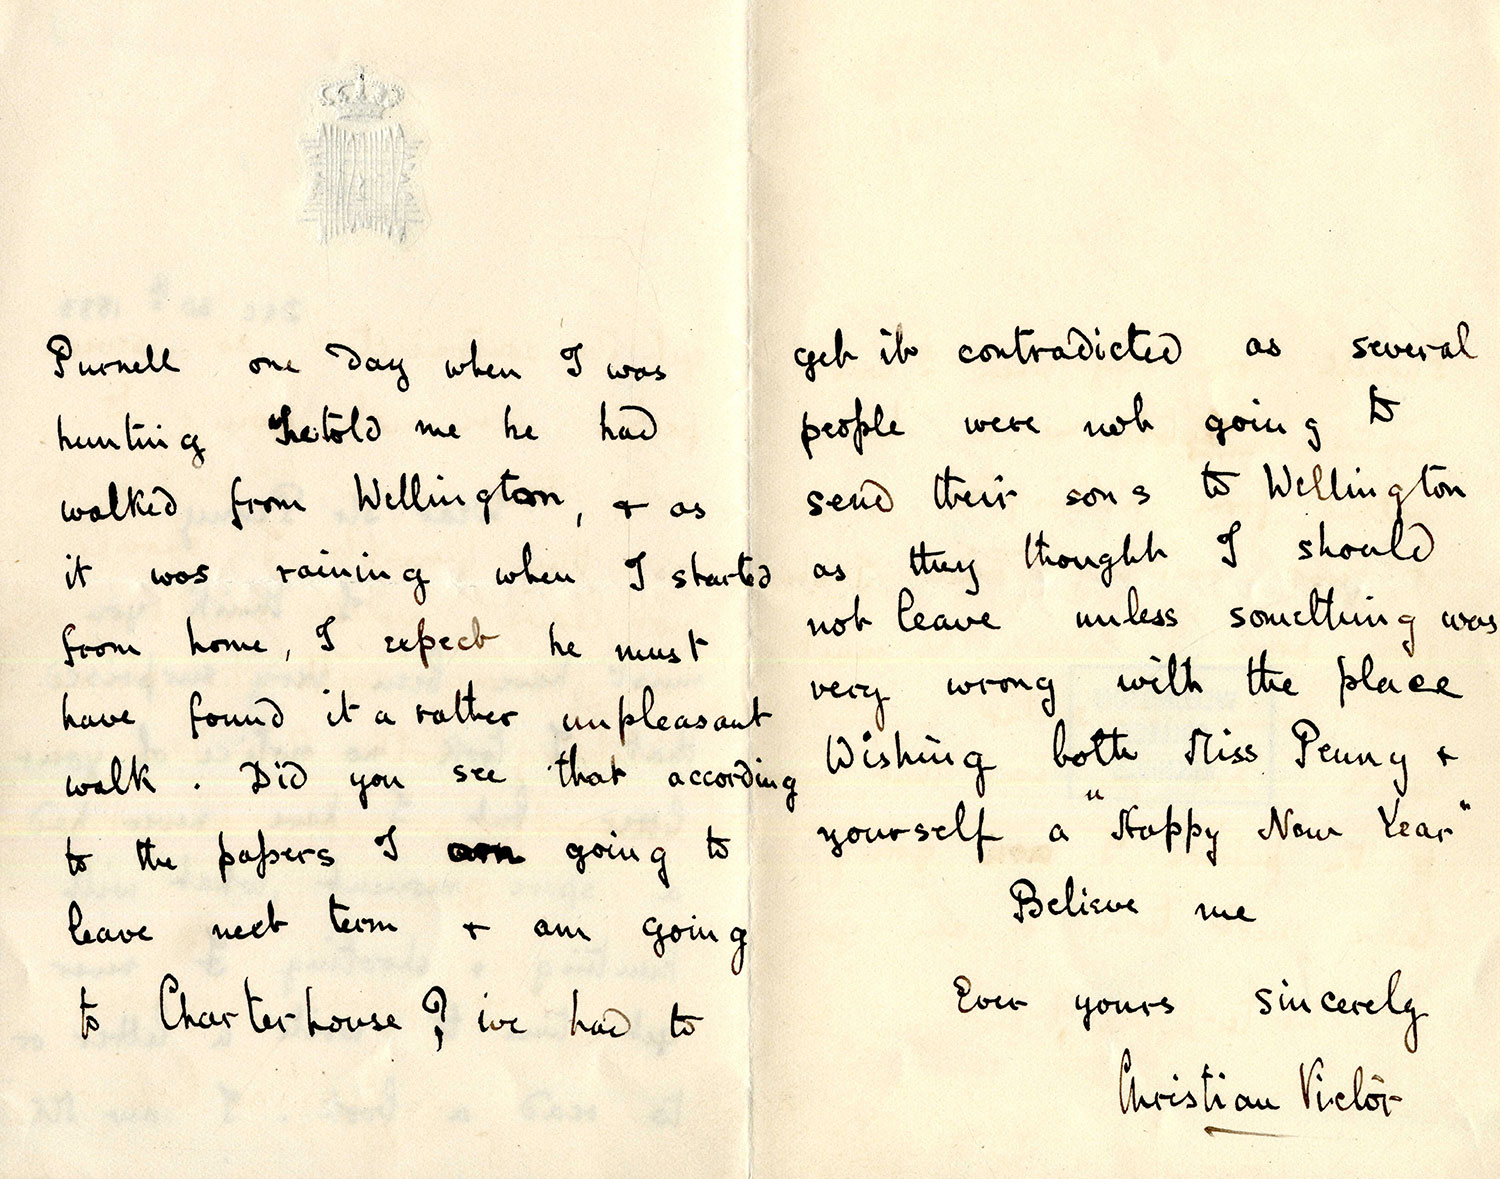 Purnell one day when I was
hunting he told me he had
walked from Wellington, & as
it was raining when I started
from home, I expect he must
have found it a rather unpleasant
walk. Did you see that according
to the papers I going to
leave next term & am going
to Charterhouse? we had to
get it contradicted as several
people were not going to
send their sons to Wellington
as they thought I should
not leave unless something was
very wrong with the place
Wishing both Miss Penny &
yourself a "Happy New Year"
Believe me
Ever yours sincerely
Christian Victor